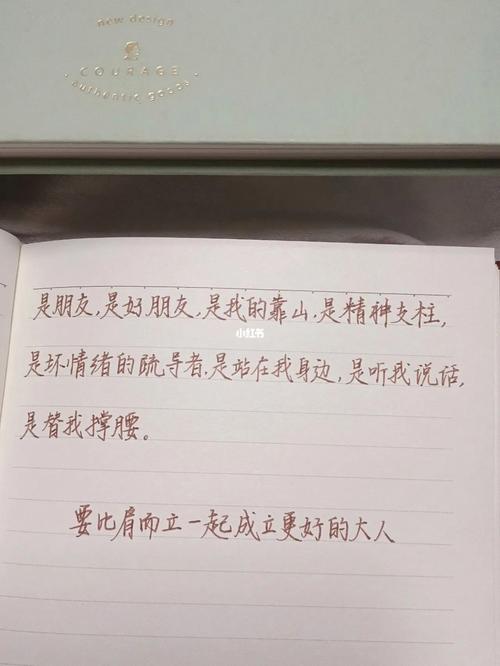 new design
COURAGE
authentic goods
是朋友,是好朋友,是我的靠山,是精神支柱,
小红书
是坏情绪的疏导者,是站在我身边,是听我说话,
是替我撑腰。
要比肩而立一起成立更好的大人